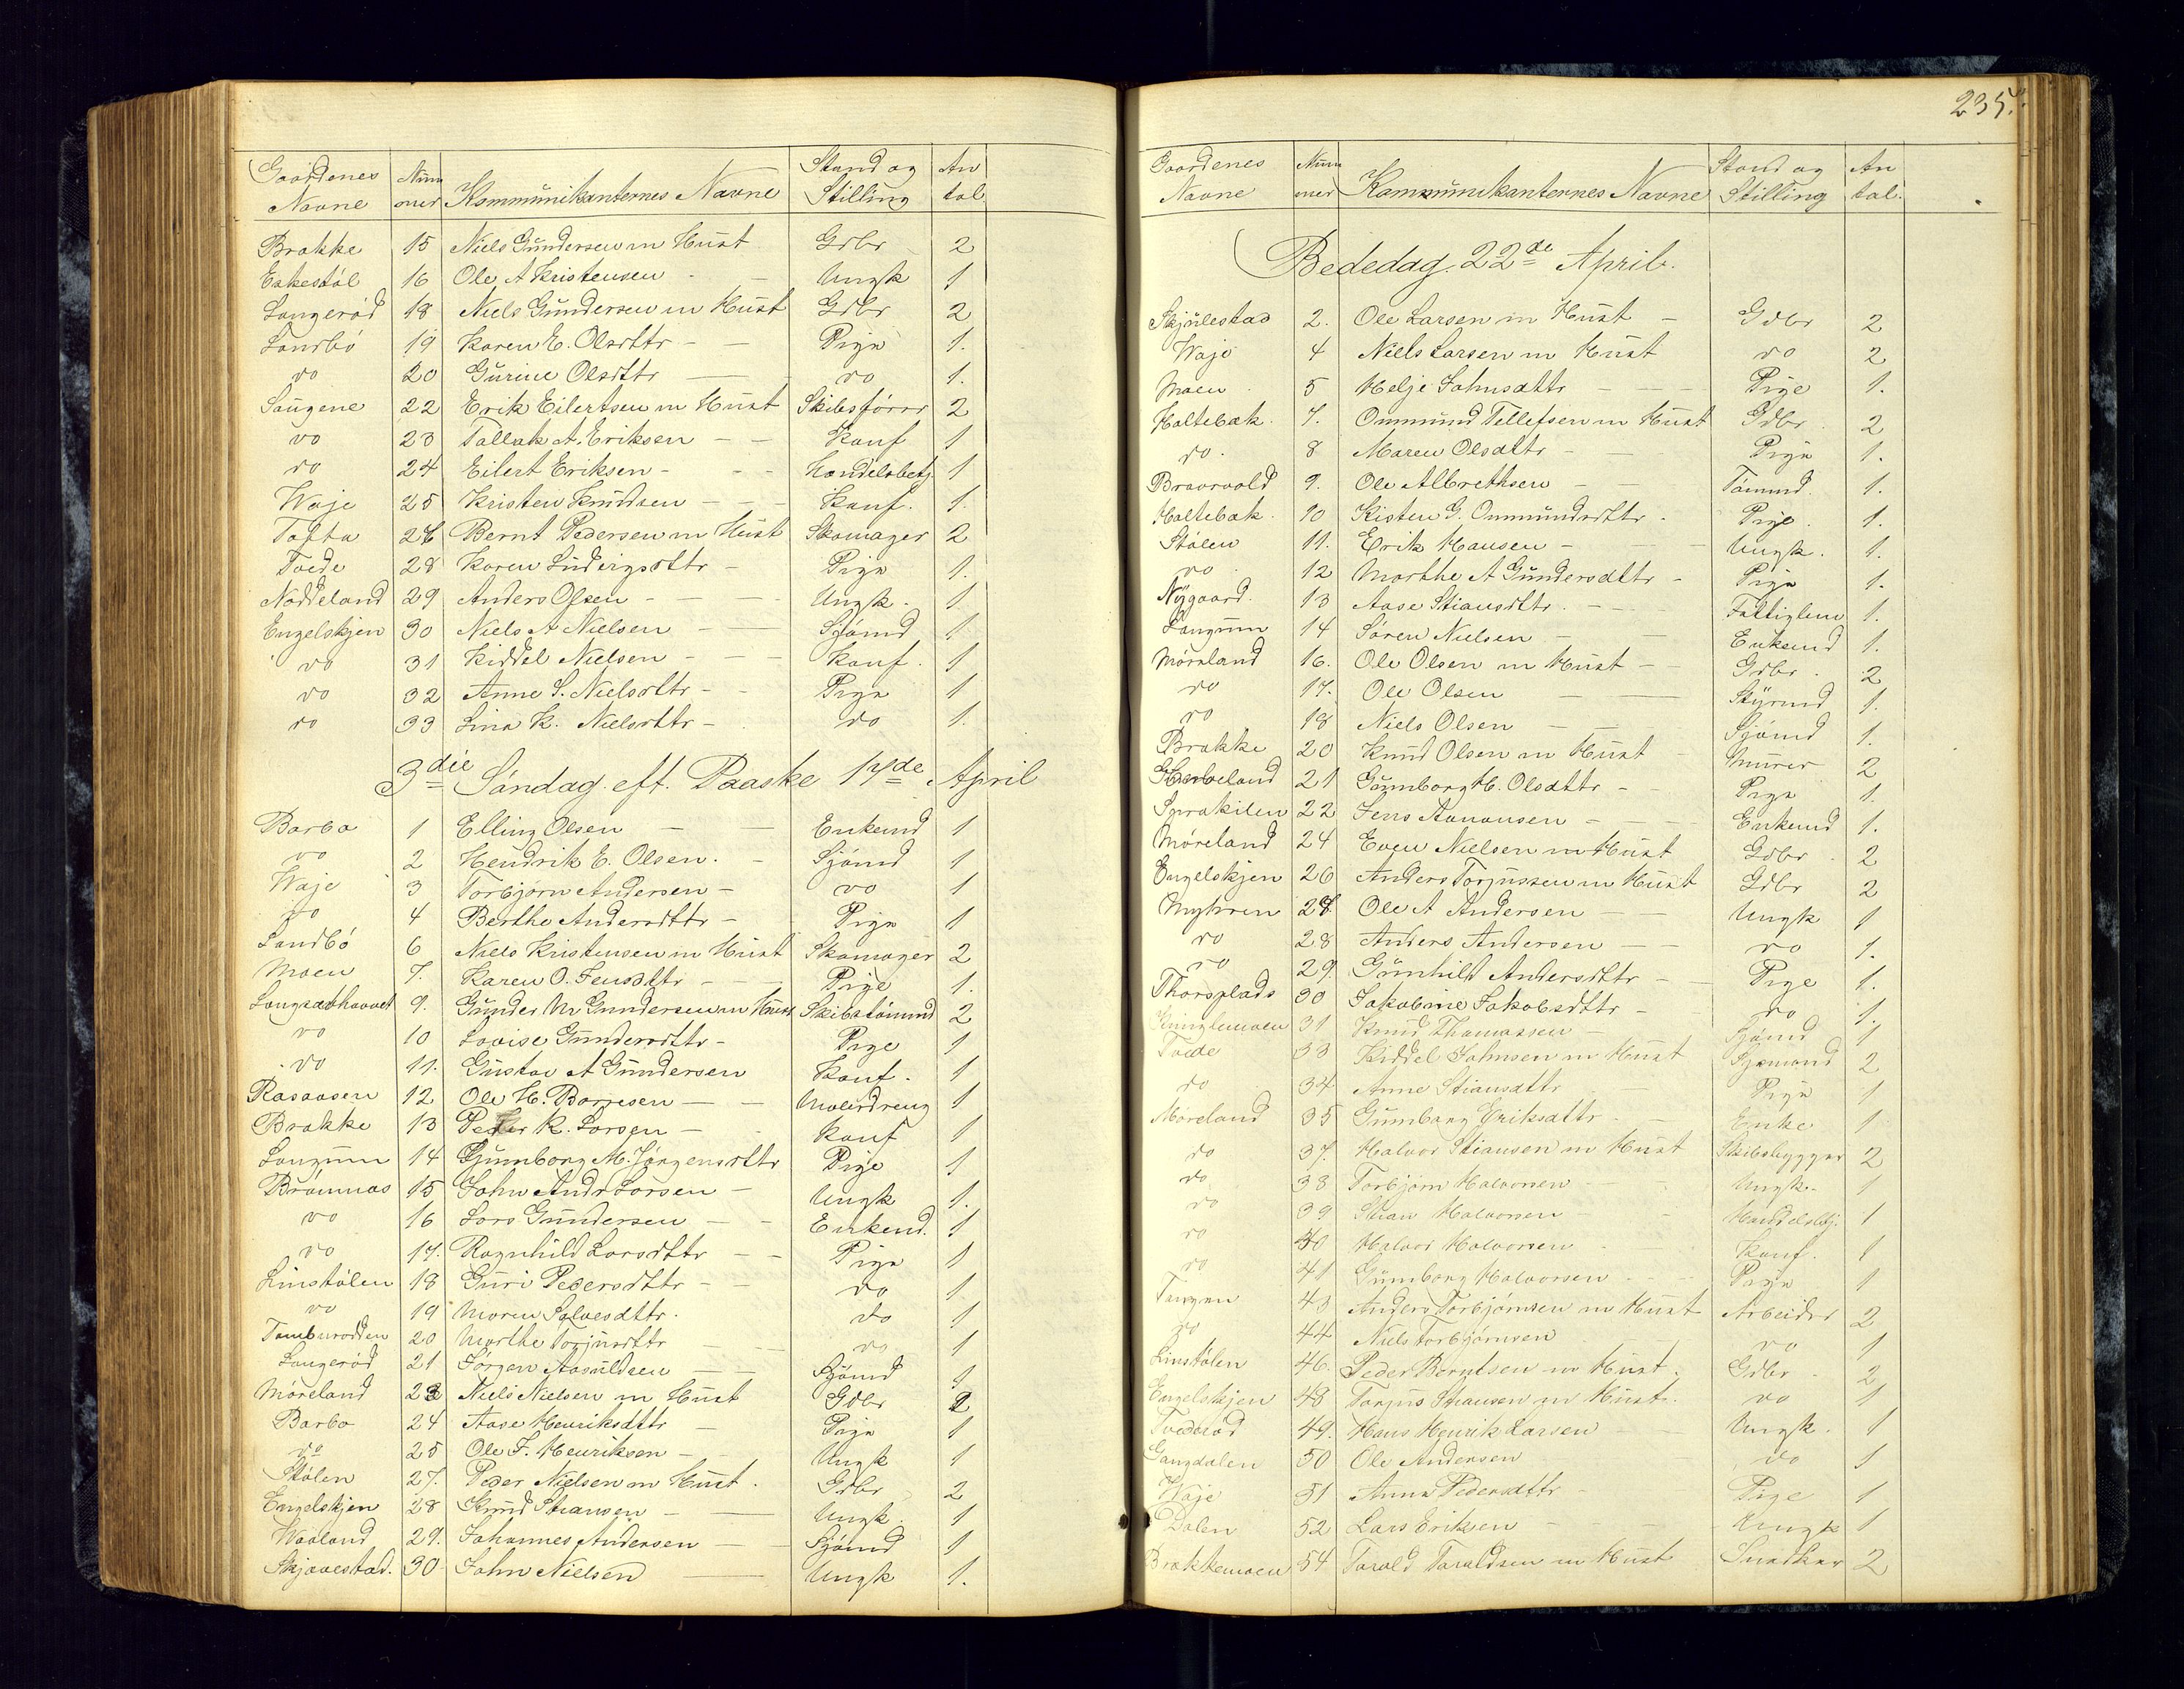 Gaardenes Navne | Num mer | Kommunikanternes Navne | Stand og Stilling | An tal
Brække 15 Niels Gundersen m Hust Gdbr 2
Eikestøl 16 Ole A Kristensen Ungk 1
Langerød 18 Niels Gundersen m Hust Gdbr 2
Sandbø 19 Karen E. Olsdttr Pige 1.
do 20 Gurine Olsdttr do 1.
Saugene 22 Erik Eilertsen m Hust Skibsfører 2
do 23 Tallak A. Eriksen Konf 1
do 24 Eilert Eriksen Handelsbetj. 1
Waje 25 Kristen Knudsen Konf. 1.
Tofta 26 Bernt Pedersen m Hust Skomager 2
Tvede 28 Karen Ludvigsdttr Pige 1.
Noddeland 29 Anders Olsen Ungk. 1
Engelskjen 30 Niels A Nielsen Sjømd 1.
do 31 Kiddel Nielsen Konf. 1
do 32 Anne S. Nielsdttr Pige 1
do 33 Lina K. Nielsdttr do 1.
3die Søndag eft. Paaske 17de April
Barbo 1 Elling Olsen Enkemd 1
do 2 Hendrik E. Olsen. Sjømd 1
Waje 3 Torbjørn Andersen do 1
do 4 Berthe Andersdttr Pige 1
Sandbø 6 Niels Kristensen m Hust Skomager 2
Moen 7. Karen O. Jensdttr Pige 1.
9. Gunder M Gundersen m Hust Skibstømmd 2
do 10 Lovise Gundersdttr Pige 1
do 11. Gustav A Gundersen Konf. 1
Rasaasen 12 Ole H. Borresen Malerdreng 1
Brække 13 Peder K. Larsen Konf 1
Langum 14 Gumborg M. Jørgensdttr Pige 1
Brømnas 15 John Andr Larsen Ungk 1.
do 16 Lars Gundersen Enkemd. 1
do 17. Ragnhild Larsdttr Pige 1
Linstølen 18 Guri Pedersdttr do 1
do 19 Maren Salvesdttr. do 1
20 Marthe Torjusdttr do 1
Langerød 21 Jørgen Aasuldsen Sjømd 1
Møreland 23 Niels Nielsen m Hust Gdbr 2
Barbo 24 Aase Henriksdttr Pige 1
do 25 Ole F. Henriksen Ungk 1
Stølen 27. Peder Nielsen m Hust. Gdbr 2
Engelskjen 28 Knud Stiansen Ungk. 1
Waaland 29. Johannes Andersen Sjømd 1
Skjævestad. 30 John Nielsen Ungk 1.
235.
Gaardenes Navne | Num mer | Kommunikanternes Navne | Stand og Stilling | An tal.
Bededag. 22de April.
Skjulestad 2. Ole Larsen m Hust Gdbr 2
Waje 4 Niels Larsen m Hust do 2
Moen 5 Helje Johnsdttr Pige 1.
Holtebæk. 7. Ommund Tellefsen m Hust Gdbr. 2
do. 8 Maren Olsdttr Pige 1.
Braarvold 9. Ole Albrethsen Tømmd. 1.
Holtebæk. 10 Kisten G. Ommundsdttr. Pige. 1.
Stølen 11. Erik Hansen Ungk. 1.
do 12 Marthe A Gundersdttr Pige 1.
Nygaard. 13 Aase Stiansdttr. Fattiglem 1.
Langum 14 Søren Nielsen Enkemd 1.
Møreland 16. Ole Olsen m Hust Gdbr. 2
do 17. Ole Olsen Styrmd 1.
do 18 Niels Olsen Sjømd 1.
Brække 20 Knud Olsen m Hust Murer 2
21 Gumborg H. Olsdttr Pige 1.
22 Jens Aanonsen Enkemd 1.
Møreland 24 Even Nielsen m Hust Gdbr. 2
Engelskjen 26 Anders Torjussen m Hust Gdbr 2
Myhren 27. Ole A Andersen Ungk 1
do 28 Anders Andersen do 1.
do 29. Gunhild Andersdttr Pige 1.
Thorsplads 30 Jakobine Jakobsdttr do 1.
31 Knud Thomassen Sjømd 1
Tvede 33 Kiddel Johnsen m Hust Sjømand 2
do 34 Anne Stiansdttr Pige 1
Møreland 35 Gumborg Eriksdttr Enke 1
do 37. Halvor Stiansen m Hust Skibsbygger 2
do 38 Torbjørn Halvorsen Ungk. 1
do 39 Stian Halvorsen Handelsbtj. 1
do 40 Halvor Halvorsen Konf. 1
do 41 Gumborg Halvorsen Pige 1
Tangen 43 Anders Torbjørnsen m Hust Arbeider 2
do 44 Niels Torbjørnsen do 1
Linstølen 46. Peder Berntsen m Hust. Gdbr. 2
Engelskjen 48 Torjus Stiansen m Hust. do 1
Tvederød 49. Hans Henrik Larsen Ungk. 1
Langdalen 50 Ole Andersen do 1
Waje 51 Anna Pedersdttr Pige 1
Dalen 52 Lars Eriksen Ungk 1
Brækkemoen 54 Tarald Taraldsen m Hust Snedker 2